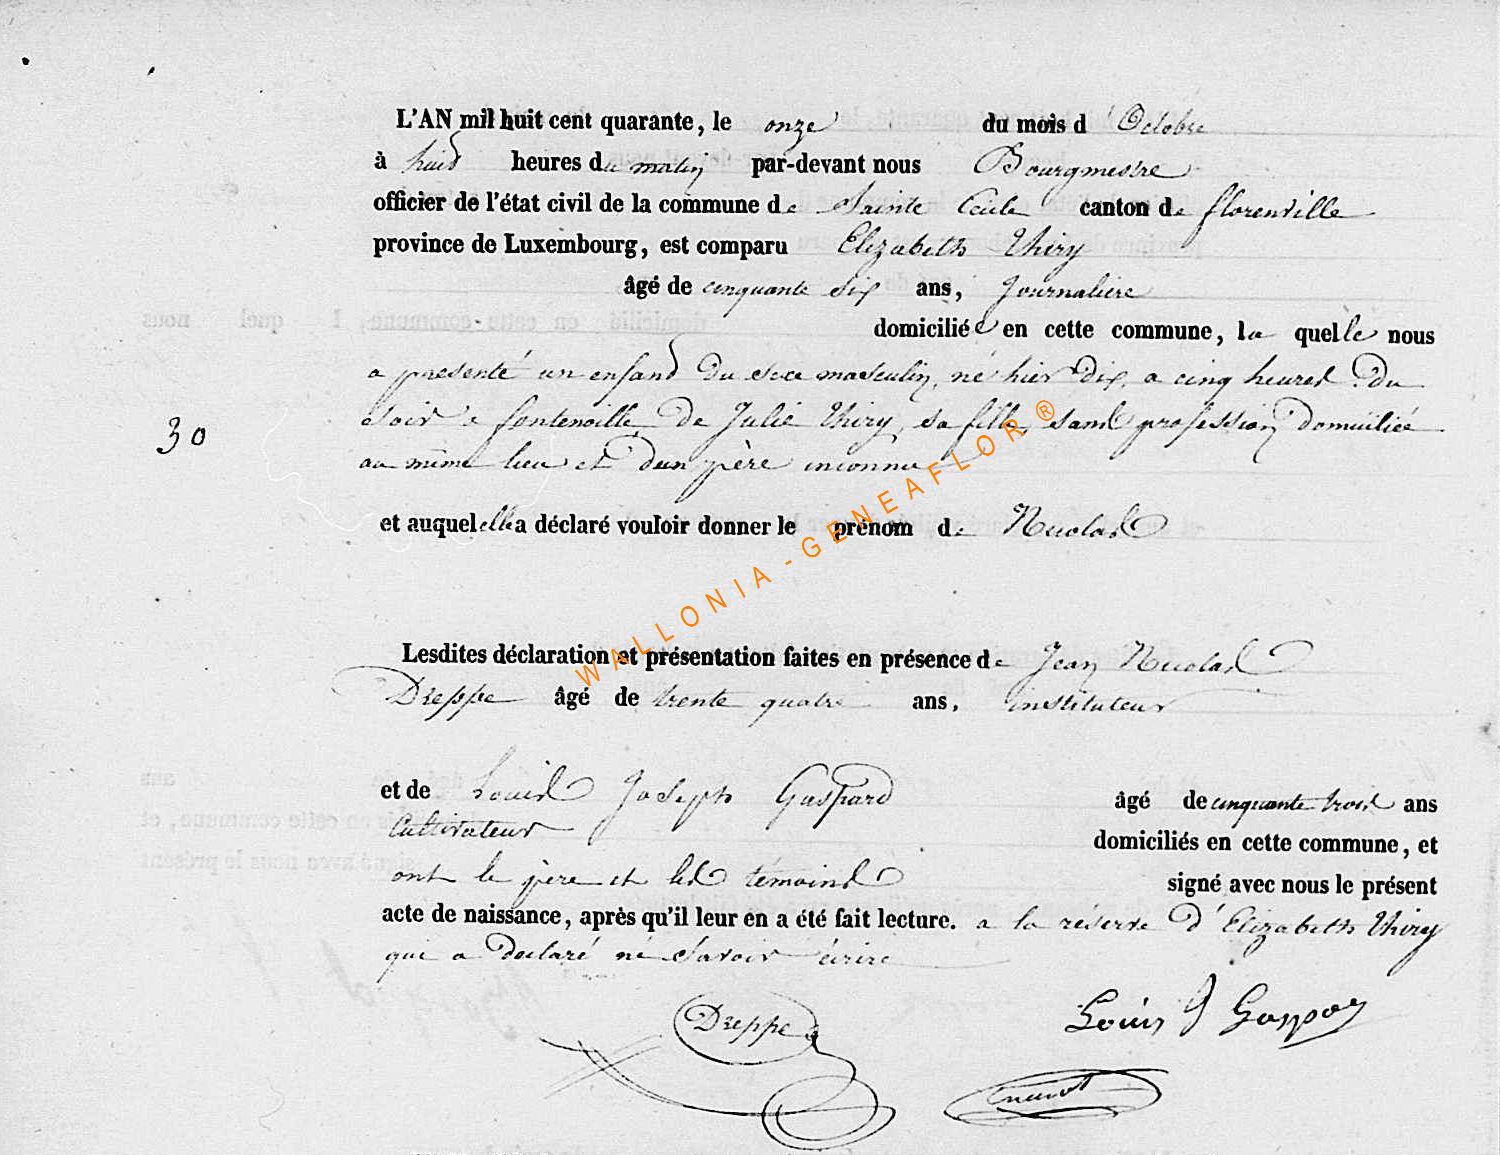 L'AN mil huit cent quarante, le onze du mois d'Octobre
à huit heures du matin par-devant nous Bourgmestre
officier de l'état civil de la commune de Sainte Cécile canton de florenville
province de Luxembourg, est comparu Elizabeth Thiry
âgé de cinquante six ans, Journalière
domiciliée en cette commune, la quelle nous
a présenté un enfant du sexe masculin, né hier dix, a cinq heures du
soir a fontenoille, de Julie Thiry, sa fille, sans profession, domiciliée
au même lieu et d'un père inconnu
30
et auquel elle a déclaré vouloir donner le prénom de Nicolas
Lesdites déclaration et présentation faites en présence de Jean Nicolas
Dreppe âgé de trente quatre ans, instituteur
et de Louis Joseph Gaspard âgé de cinquante trois ans
Cultivateur domiciliés en cette commune, et
ont le père et les témoins signé avec nous le présent
acte de naissance, après qu'il leur en a été fait lecture. a la réserve d'Elizabeth Thiry
qui a déclaré ne savoir écrire
Dreppe
Louis J Gaspar
WALLONIA - GENEAFLOR ®